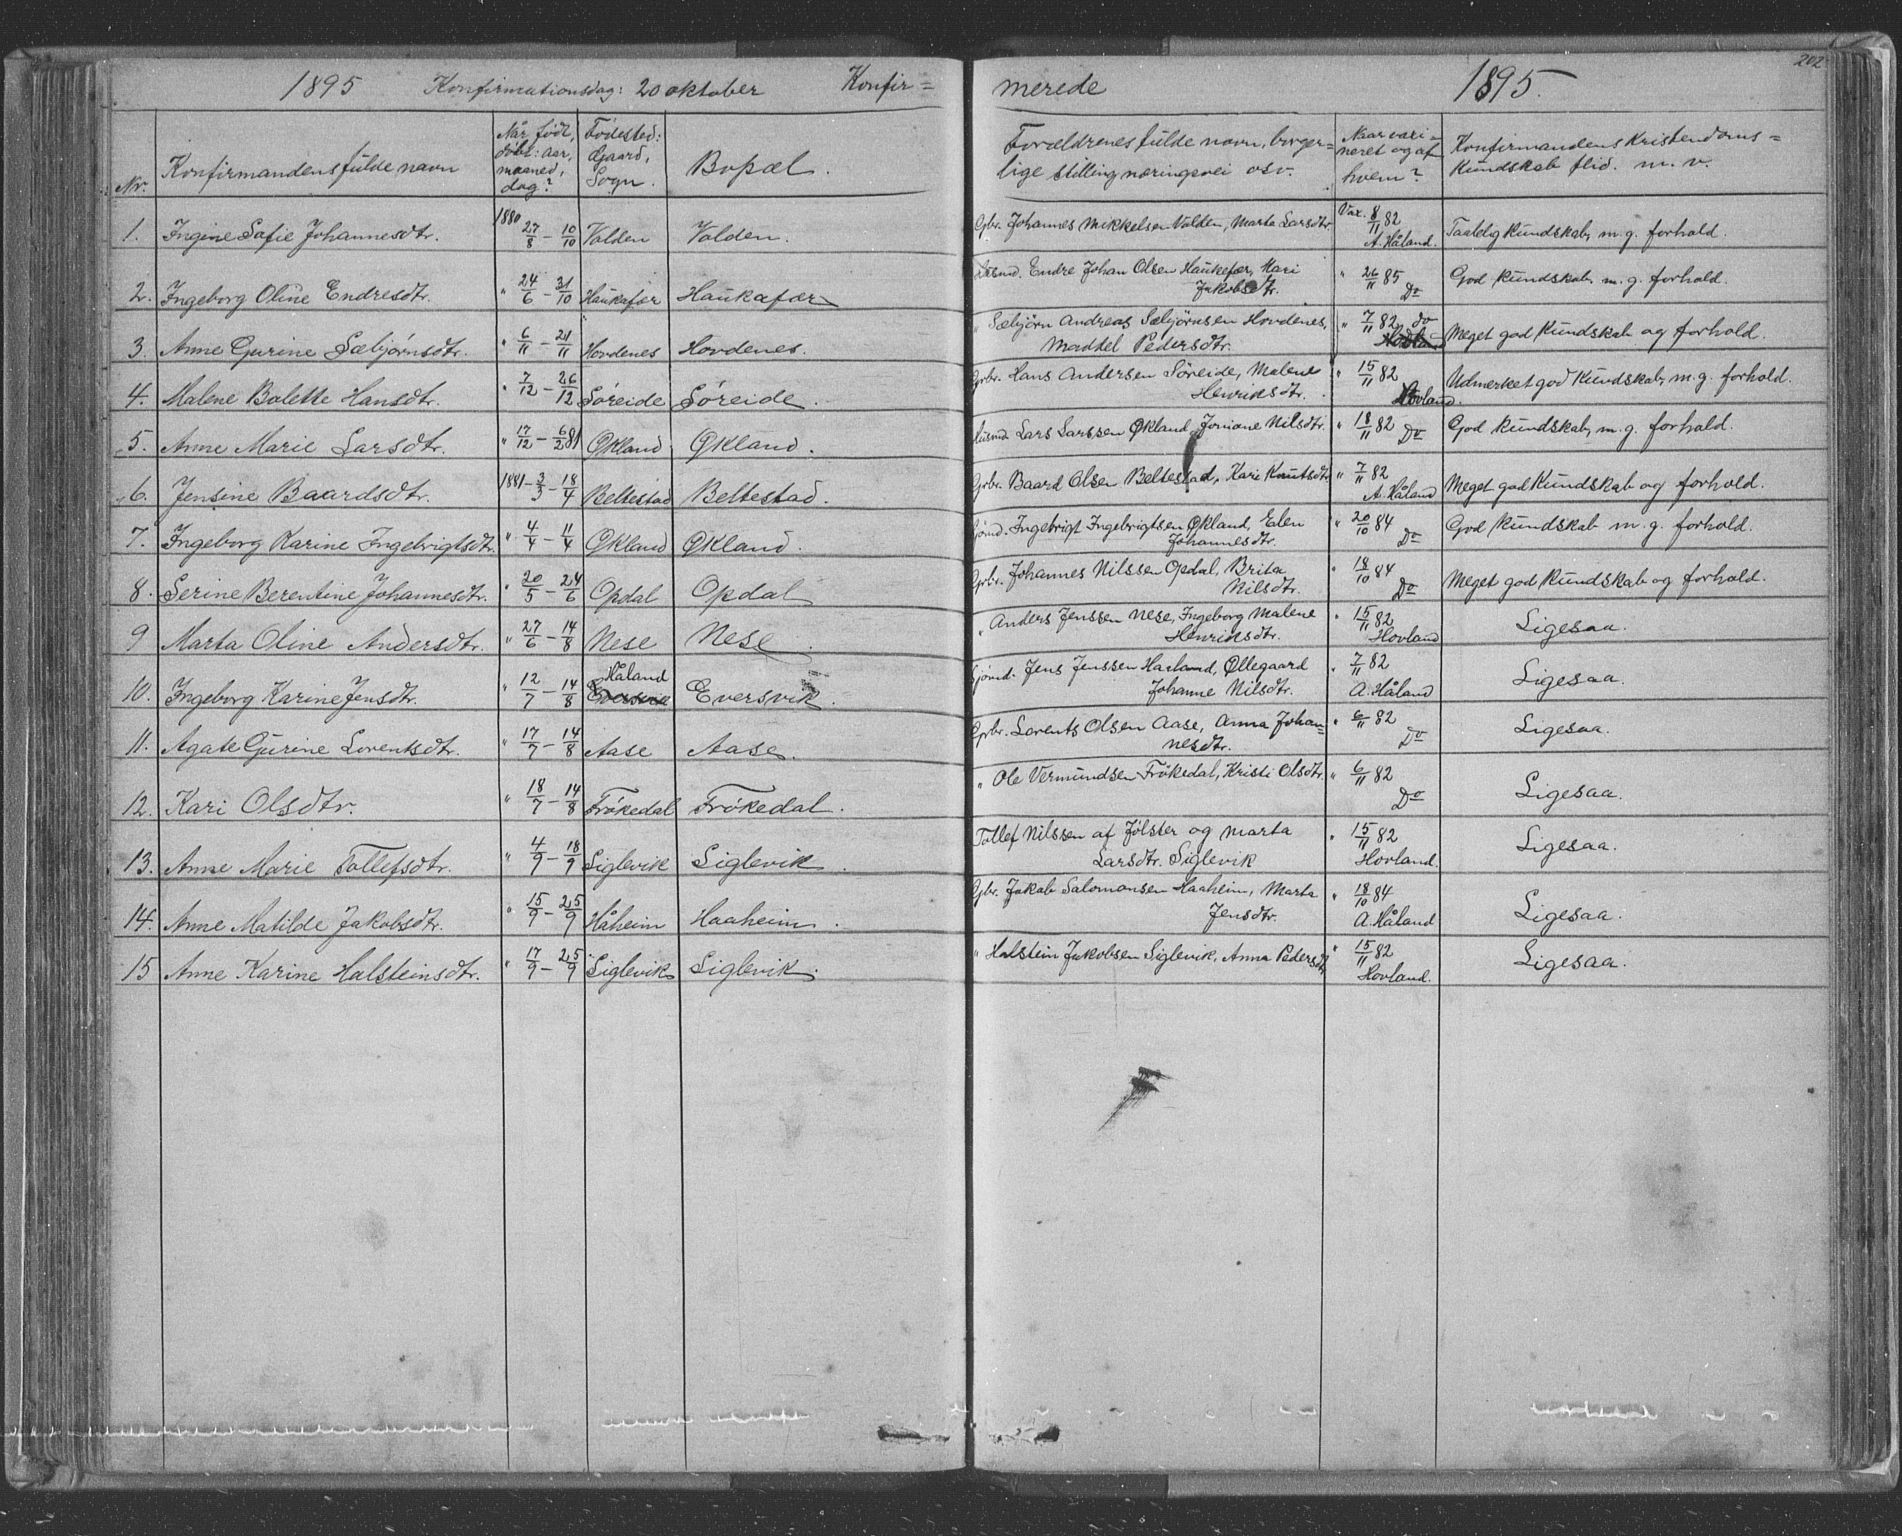 1895 Konfirmationsdag: 20 oktober Konfir=
Nr.
Konfirmandens fulde navn
Når født,
døbt: aar,
maaned,
dag?
Fødested:
Gaard,
Sogn.
Bopæl.
1. Ingine Sofie Johannesdtr. 1880 27/8 – 10/10 Valden Valden.
2. Ingeborg Oline Endresdtr. " 24/6 – 31/10 Haukafær Haukafær
3. Anne Gurine Sæbjørnsdtr. " 6/11 – 21/11 Hovdenes Hovdenes.
4. Malene Bolette Hansdtr. " 7/12 – 26/12 Søreide Søreide.
5. Anne Marie Larsdtr. " 17/12 – 6/2 81 Økland Økland.
6. Jensine Baardsdtr. 1881 – 3/3 – 18/4 Beltestad Beltestad.
7. Ingeborg Karine Ingebrigtsdtr. " 4/4 – 11/4 Økland Økland.
8. Serine Berentine Johannesdtr. " 20/5 – 24/6 Opdal Opdal
9 Marta Oline Andersdtr. " 27/6 – 14/8 Nese Nese.
10. Ingeborg Karine Jensdtr. " 12/7 – 14/8 Håland Eversvik Eversvik.
11. Agate Gurine Lorentsdtr. " 17/7 – 14/8 Aase Aase.
12. Kari Olsdtr. " 18/7 – 14/8 Frøkedal Frøkedal.
13. Anne Marie Tollefsdtr. " 4/9 – 18/9 Siglevik Siglevik.
14. Anne Matilde Jakobsdtr. " 15/9 – 25/9 Håheim Haaheim.
15 Anne Karine Halsteinsdtr. " 17/9 – 25/9 Siglevik Siglevik.
merede 1895. 202
Forældrenes fulde navn, borger=
lige stilling næringsvei osv.
Naar vaci=
neret og af
hvem?
Konfirmandens Kristendoms=
kundskab flid. m. v.
Gbr. Johannes Mikkelsen Valden, Marta Larsdtr. Vax. 8/11 82
A. Håland. Taalelig kundskab, m. g. forhold.
Husmd. Endre Johan Olsen Haukefær, Mari
Jakobsdtr. " 26/11 85 Do God kundskab, m. g. forhold.
" Sæbjörn Andreas Sæbjörnsen Hovdenes,
Maddel Pedersdtr. " 7/11 82 do Meget god kundskab og forhold.
Grbr. Hans Andersen Søreide, Malene
Henriksdtr. " 15/11 82
Hovland. Udmerket god kundskab, m. g. forhold.
Husmd Lars Larssen Økland, Joriane Nilsdtr. " 18/11 82 Do God kundskab, m. g. forhold.
Grbr. Baard Olsen Beltestad, Kari Knutsdtr " 7/11 82
A. Håland Meget god kundskab og forhold.
Gømd. Ingebrigt Ingebrigtsen Økland, Elen
Johannesdtr. " 20/10 84 Do God kundskab m. g. forhold.
Grbr. Johannes Nilssen Opdal, Brita
Nilsdtr. " 18/10 84 Do Meget god kundskab og forhold.
" Anders Jenssen Nese, Ingeborg Malene
Henriksdtr. " 15/11 82
Hovland Ligesaa.
Gjömd. Jens Jenssen Haaland, Øllegaard
Johanne Nilsdtr. " 7/11 82
A. Håland Ligesaa.
Grbr. Lorents Olsen Aase, Anna Johan=
nesdtr. " 6/11 82 Do Ligesaa.
" Ole Vermundsen Frøkedal, Kristi Olsdtr. " 6/11 82
Do Ligesaa.
Tollef Nilssen af Jølster og Marta
Larsdtr. Siglevik " 15/11 82
Hovland. Ligesaa.
Gbr. Jakob Salomonsen Haaheim, Marta
Jensdtr. " 18/10 84
A. Håland Ligesaa.
" Halstein Jakobsen Siglevik, Anna Pedersdtr " 15/11 82
Hovland. Ligesaa.